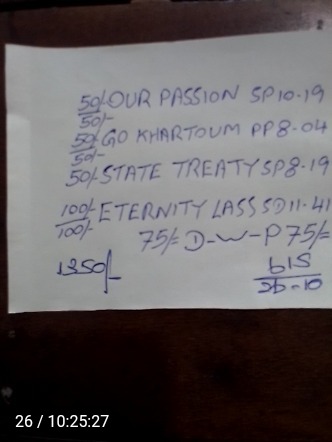 50/- OUR PASSION SP10-19
50/-
50/- GO KHARTOUM PP8-04
50/-
50/- STATE TREATY SP8-19
100/- ETERNITY LASS SD11-41
100/-
75/= D-W-P 75/=
1350/-
26 / 10:25:27